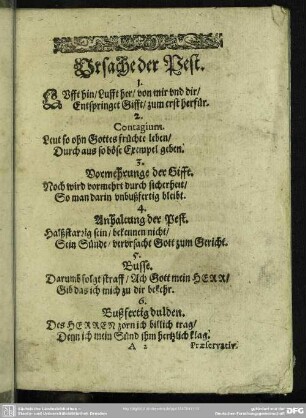 Ursache der Pest.
1.
LUfft hin/ Lufft her/ von mir vnd dir/
Entspringet Gifft/ zum erst herfür.
2.
Contagium.
Leut so ohn Gottes früchte leben/
Durch aus so böse Exempel geben.
3.
Vormehrunge der Gifft.
Noch wird vormehrt durch sicherheit/
So man darin vnbußfertig bleibt.
4.
Anhaltung der Pest.
Halßstarrig sein/ bekennen nicht/
Sein Sünde/ verursacht Gott zum Gericht.
5.
Busse.
Darumb folgt straff/ Ach Gott mein HERR/
Gib das ich mich zu dir bekehr.
6.
Bußfertig dulden.
Des HERREN zorn ich billich trag/
Denn ich mein Sünd ihm hertzlich klag.
A 2 Præservativ.